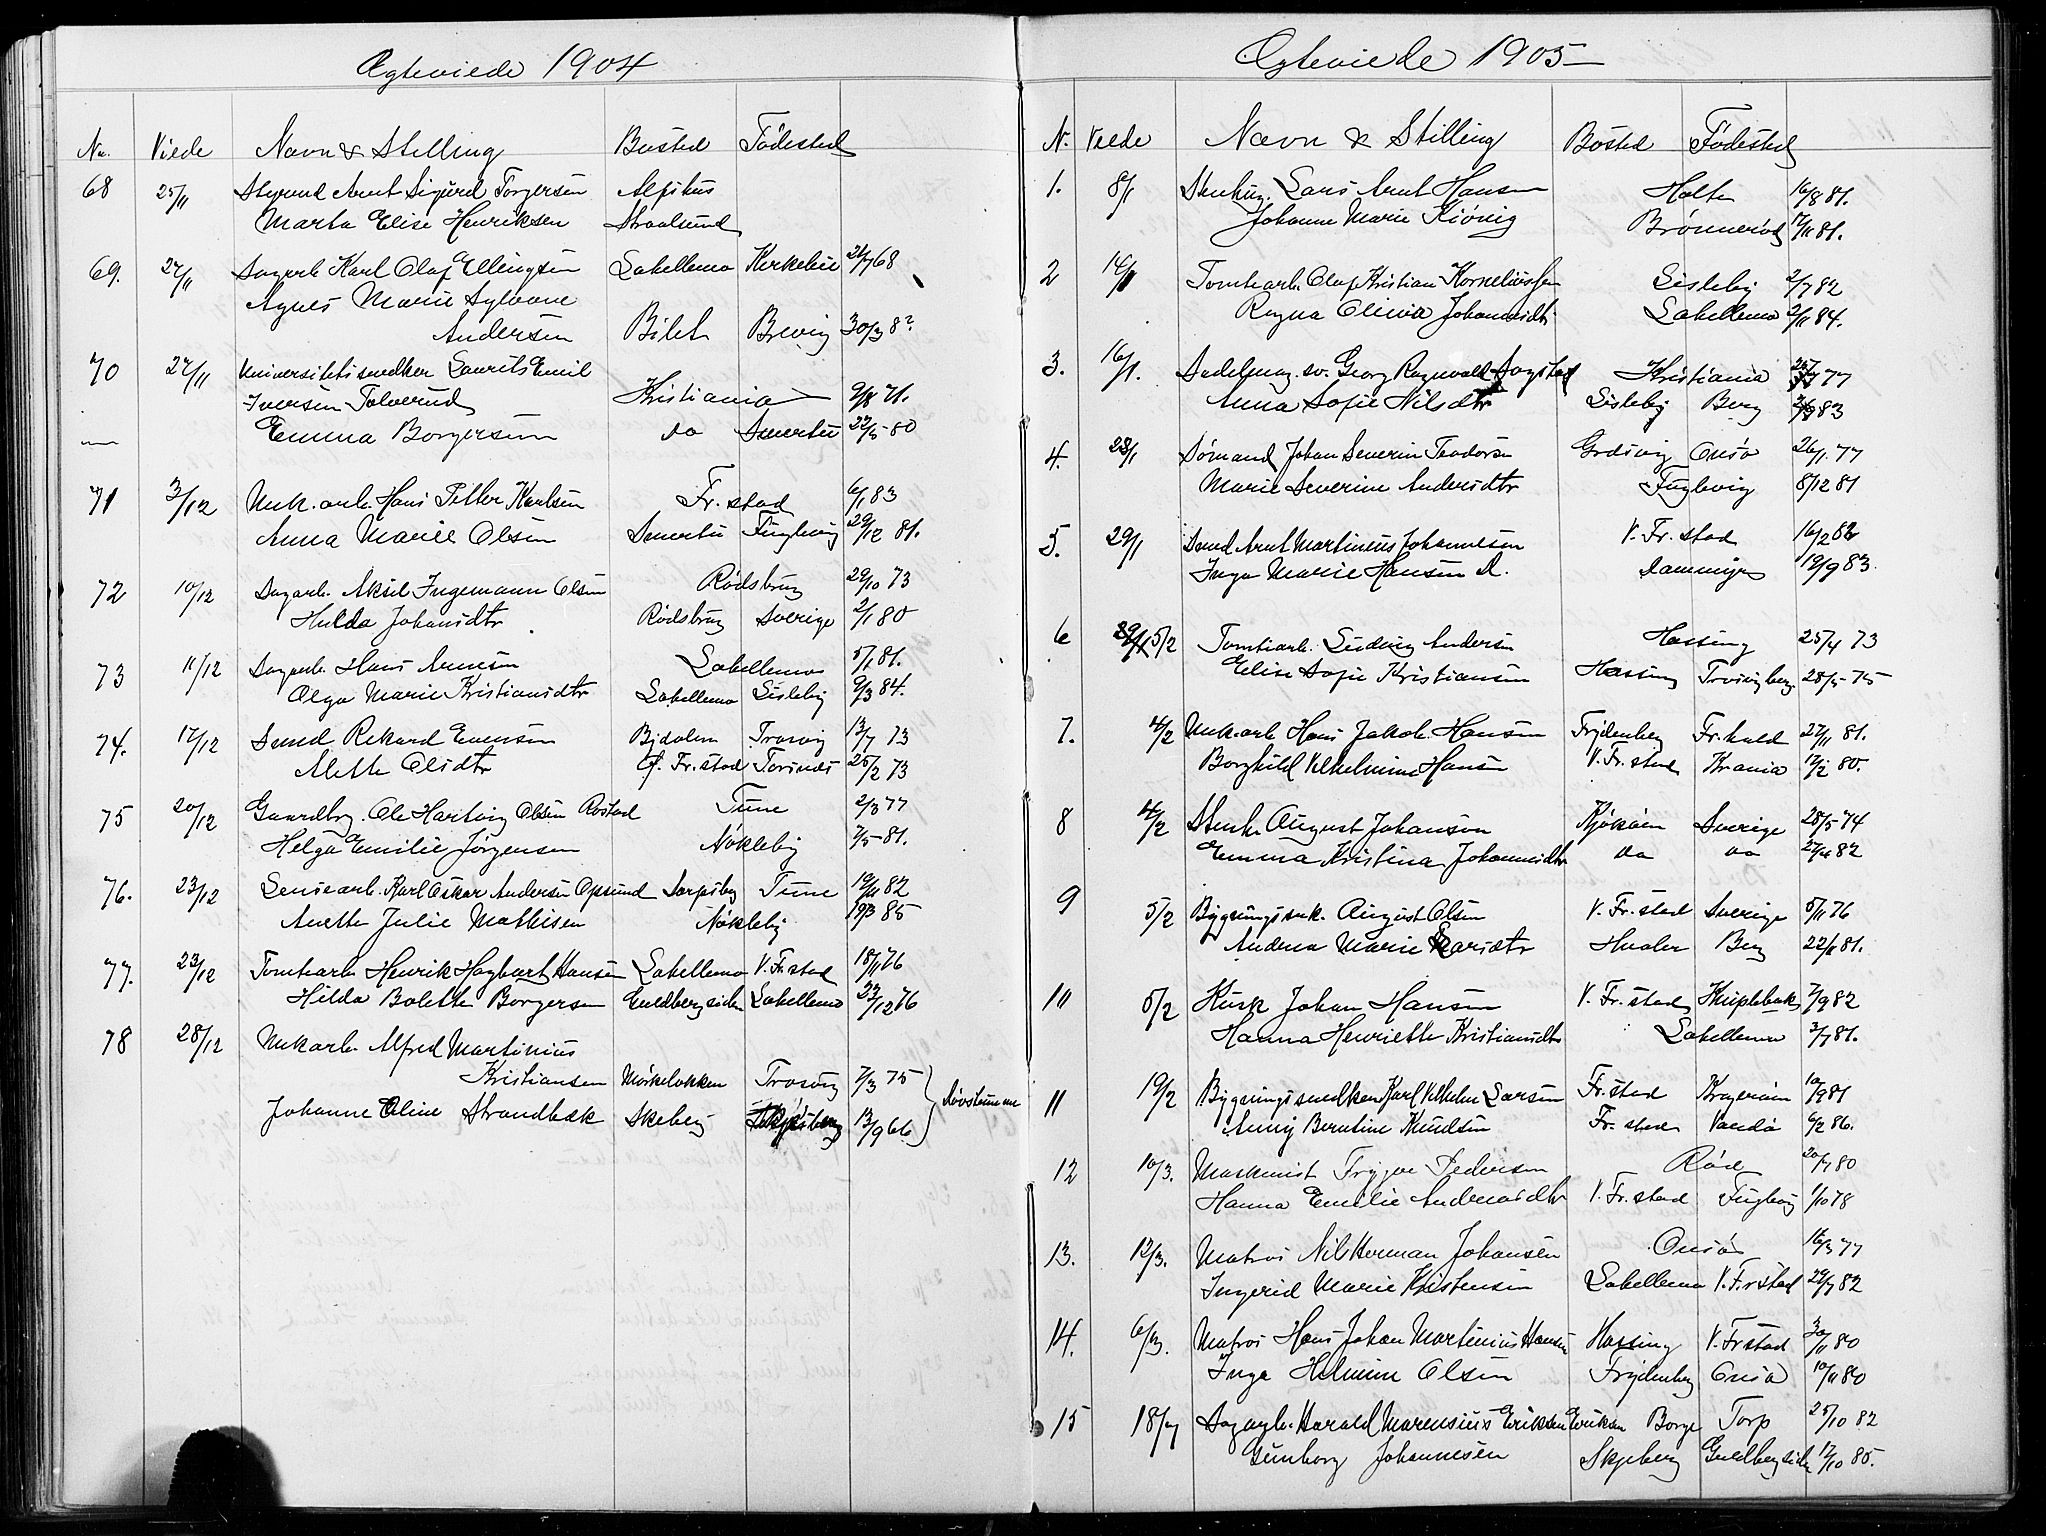 Ægteviede 1904
No. Viede Navn & Stilling Bosted Fødested
68 25/11 Styrmd Arnt Sigurd Torgersen Alfshus
Marta Elise Henriksen Straalsund
69. 27/11 Sagarb. Karl Olaf Ellingsen Labellemo Kirkebie 21/7 68
Agnes Marie Sylvane
Andersen Bilet Brevig 30/3 8?
70 27/11 Universitetssnedker Laurits Emil
Iversen Tolverud Kristiania 9/8 71.
Emma Borgersen do Smertu 22/5 80
71 3/12 Murarb. Hans Petter Karlsen Fr. stad 6/1 83
Anna Marie Olsen Smertu Fuglevig 29/12 81.
72 10/12 Sagarb. Aksel Ingemann Olsen Rødsbrug 29/10 73
Hulda Johansdtr Rødsbrug Sverige 2/1 80
73 11/12 Sagarb. Hans Arnesen Labellemo 5/1 81.
Olga Marie Kristiansdtr Labellemo Lisleby 9/3 84.
74. 17/12 Smed Rikard Evensen Bjdalen Trosvig 13/7 73
Mette Olsdtr Gl. Fr. stad Torsnes 25/2 73
75 20/12 Gaardbr. Ole Hartvig Olsen Rostad Tune 2/3 77
Helga Emilie Jørgensen Nøkleby 7/5 81.
76. 23/12 Lensearb. Karl Oskar Andersen Opsund Sarpsbg Tune 19/11 82
Anette Julie Mathisen Nøkleby 19/3 85
77. 23/12 Tomtearb. Henrik Hagbart Hansen Labellemo V. Fr. stad 18/11 76
Hilda Bolette Borgersen Guldbergsiden Labellemo 23/12 76
78 28/12 Murarb. Alfred Martinius
Kristiansen Mørkelokken Trosvig 7/3 75
Johanne Eline Strandbæk Skeberg 13/9 66.
Ægteviede 1905
N. Viede Navn & Stilling Bosted Fødested
1. 8/1 Stenhug. Lars Arnt Hansen Holte 16/8 81.
Johanne Marie Kiønig Brønnerød 17/11 81.
2 14/1 Tomtearb. Olaf Kristian Korneliussen Lisleby 2/7 82
Ragna Olivia Johannsdtr Labellemo 2/11 84.
3. 16/1. Sadelmag. sv. Georg Ragnvald Sogstad Kristiania 77
Anna Sofie Nilsdtr Lisleby Berg 83
4. 23/1 Sømand Johan Severin Teodorsen Gresvig Onsø 26/1. 77
Marie Severine Andersdtr Fuglevig 8/12 81
5. 29/1 Smed Arnt Martinius Johannesen V. Fr. stad 16/2 82
Inga Marie Hansen D. Damminge 19/9 83
6 5/2 Tomtearb. Ludvig Andersen Hassing 25/4 73
Elise Sofie Kristiansen Hassing Trosvigberg 28/5 75
7. 4/2 Murarb Hans Jakob Hansen Frydenberg Fr. hald 27/11 81.
Borghild Vilhelmine Hansen V. Fr. stad Krania 17/2 80.
8 4/2 Stenh. August Johanson Kjøkøen Sverige 28/5 74
Emma Kristina Johannesdtr do do 82
9 5/2 Bygningssnk. August Olsen V. Fr. stad Sverige 5/11 76
Andrea Marie Larsdtr Hvaler Berg 22/1 81.
10 5/2 Kusk Johan Hansen V. Fr. stad Kniplebak 7/9 82
Hanna Henriette Kristiansdtr Labellemo 3/7 81.
11 19/2 Bygningssnedker Karl Vilhelm Larsen Fr. stad Kragerøen 10/9 81
Anny Berntine Knudsen Fr. stad Vardø 6/2 86.
12 10/3. Maskinist Trygve Pedersen Rød 20/7 80
Hanna Emilie Andreasdtr V. Fr. stad Fuglevig 1/10 78
13. 12/3. Matros Nils Herman Johansen Onsø 16/3 77
Ingerid Marie Kristensen Labellemo V. Fr stad 29/7 82
14. 6/3. Matros Hans Johan Martinius Hansen Hassing V. Fr stad 30/11 80
Inga Helmine Olsen Frydenberg Onsø 10/11 80
15 18/4 Sagarb. Harald Marensius Eriksen Eriksen Borge Torp 25/10 82
Gunborg Johannesen Skjeberg Guldbergsiden 17/10 85.